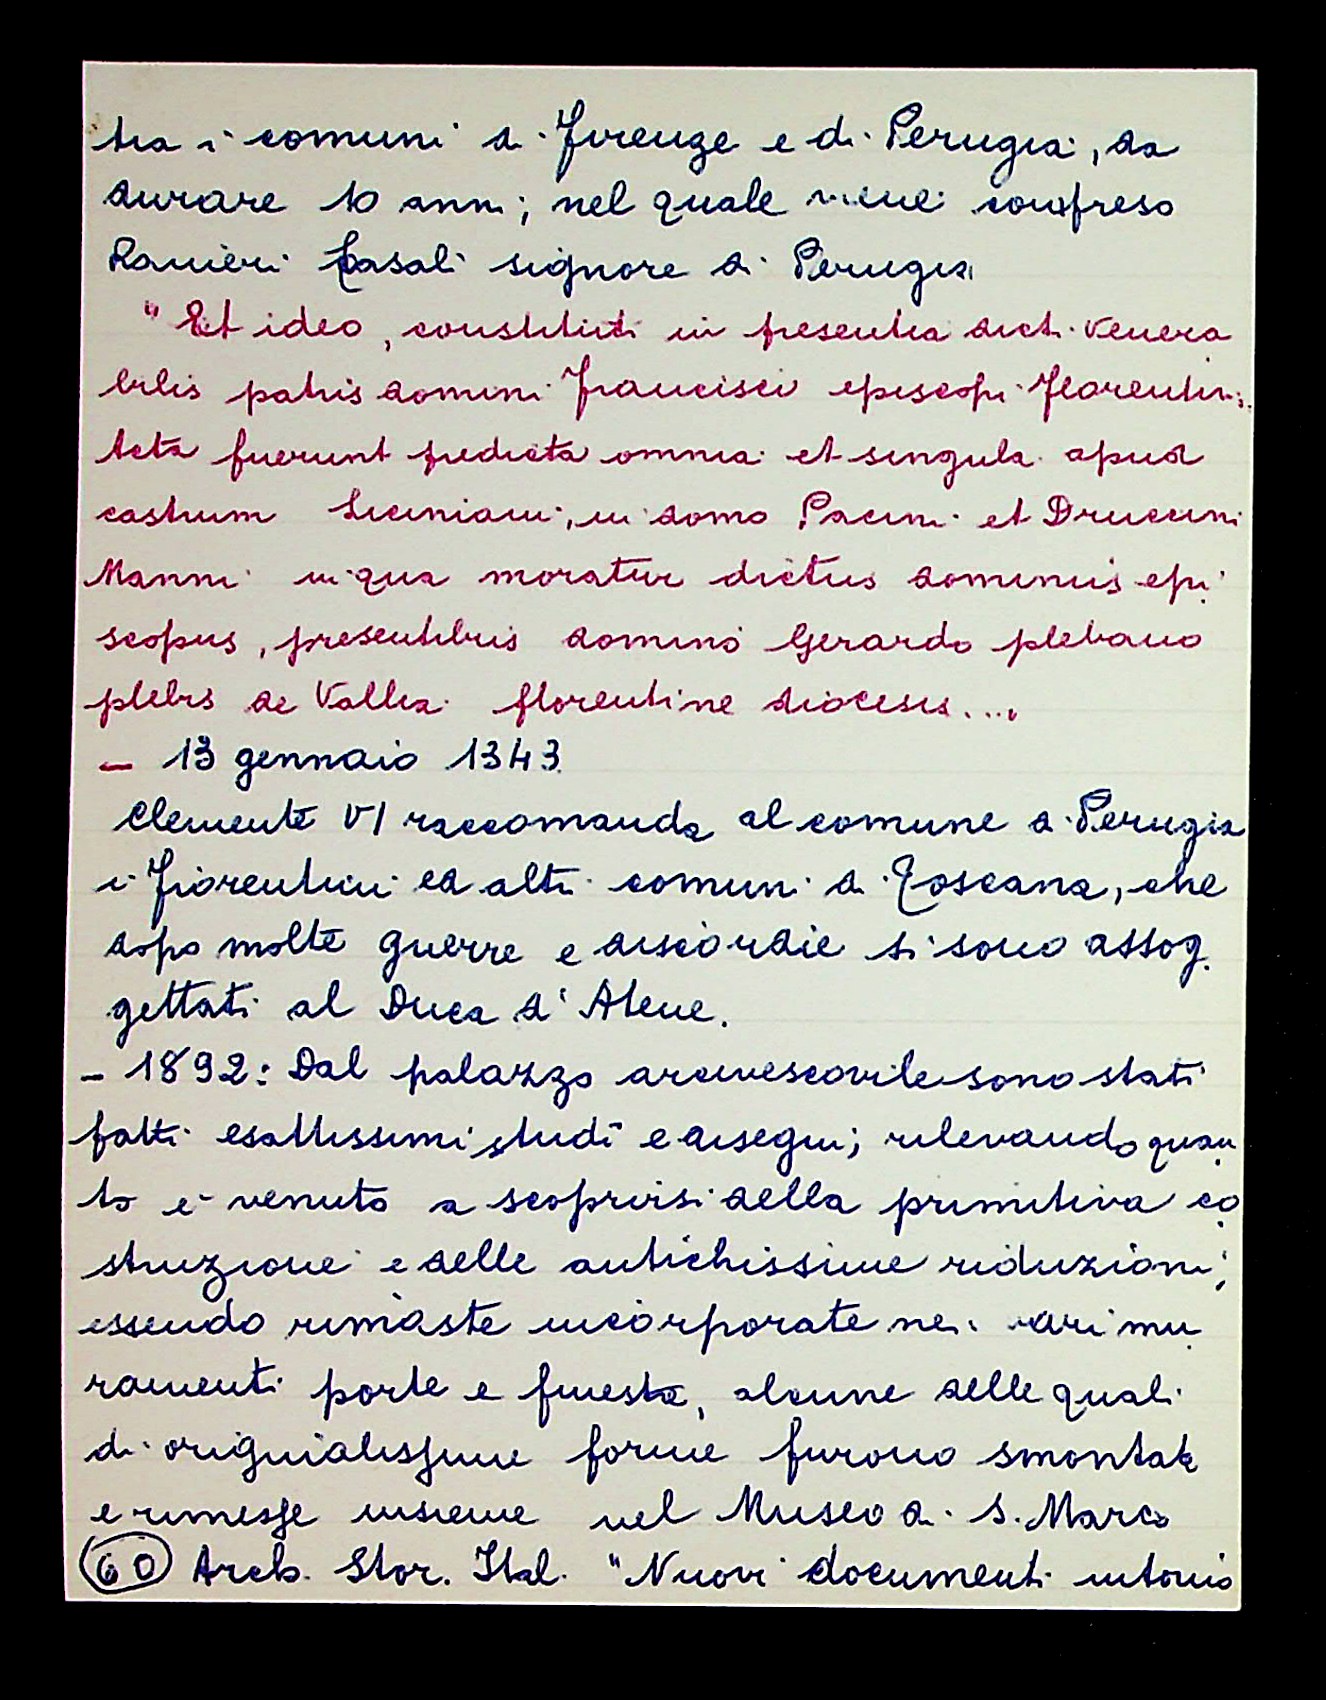 tra i comuni di Firenze e di Perugia, da
durare 10 anni; nel quale viene compreso
Ranieri Casali signore di Perugia
" Et ideo, constituti in presentia dicti venera
bilis patris domini Francisci episcopi florentini;
Acta fuerunt predicta omnia et singula apud
castrum Liciniani, in domo Pacini et Druccini
Manni in qua moratur dictus dominus epi
scopus, presentibus domino Gerardo plebano
plebis de Vallia florentine diocesis....
- 13 gennaio 1343
Clemente VI raccomanda al comune di Perugia
i Fiorentini ed altri comuni di Toscana, che
dopo molte guerre e discordie si sono assog
gettati al Duca d'Atene.
- 1892: Dal palazzo arcivescovile sono stati
fatti esattissimi studi e disegni; rilevando quan
to è venuto a scoprirsi della primitiva co
struzione e delle antichissime riduzioni,
essendo rimaste incorporate nei vari mu
ramenti porte e finestre, alcune delle quali
di originalissime forme furono smontate
e rimesse insieme nel Museo di S. Marco
(60) Arch. Stor. Ital. "Nuovi documenti intorno